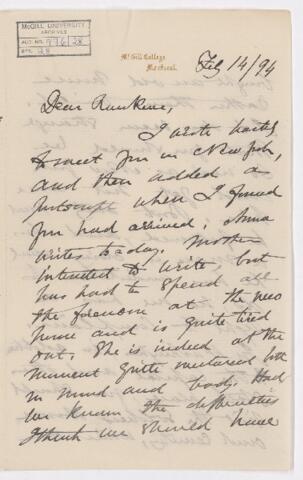 McGILL UNIVERSITY
ARCHIVES
ACC. NO.
REF.
McGill College
Montreal.
Feb 14/94
Dear Rankine,
I wrote hastily
to meet you in New York,
and then added a
postscript when I found
you had arrived. Anna
writes today. Mother
intended to write, but
has had to spend all
the forenoon at the new
house and is quite tired
out. She is indeed at the
moment quite both
in mind and body. Had
we known the difficulties
I think we should have